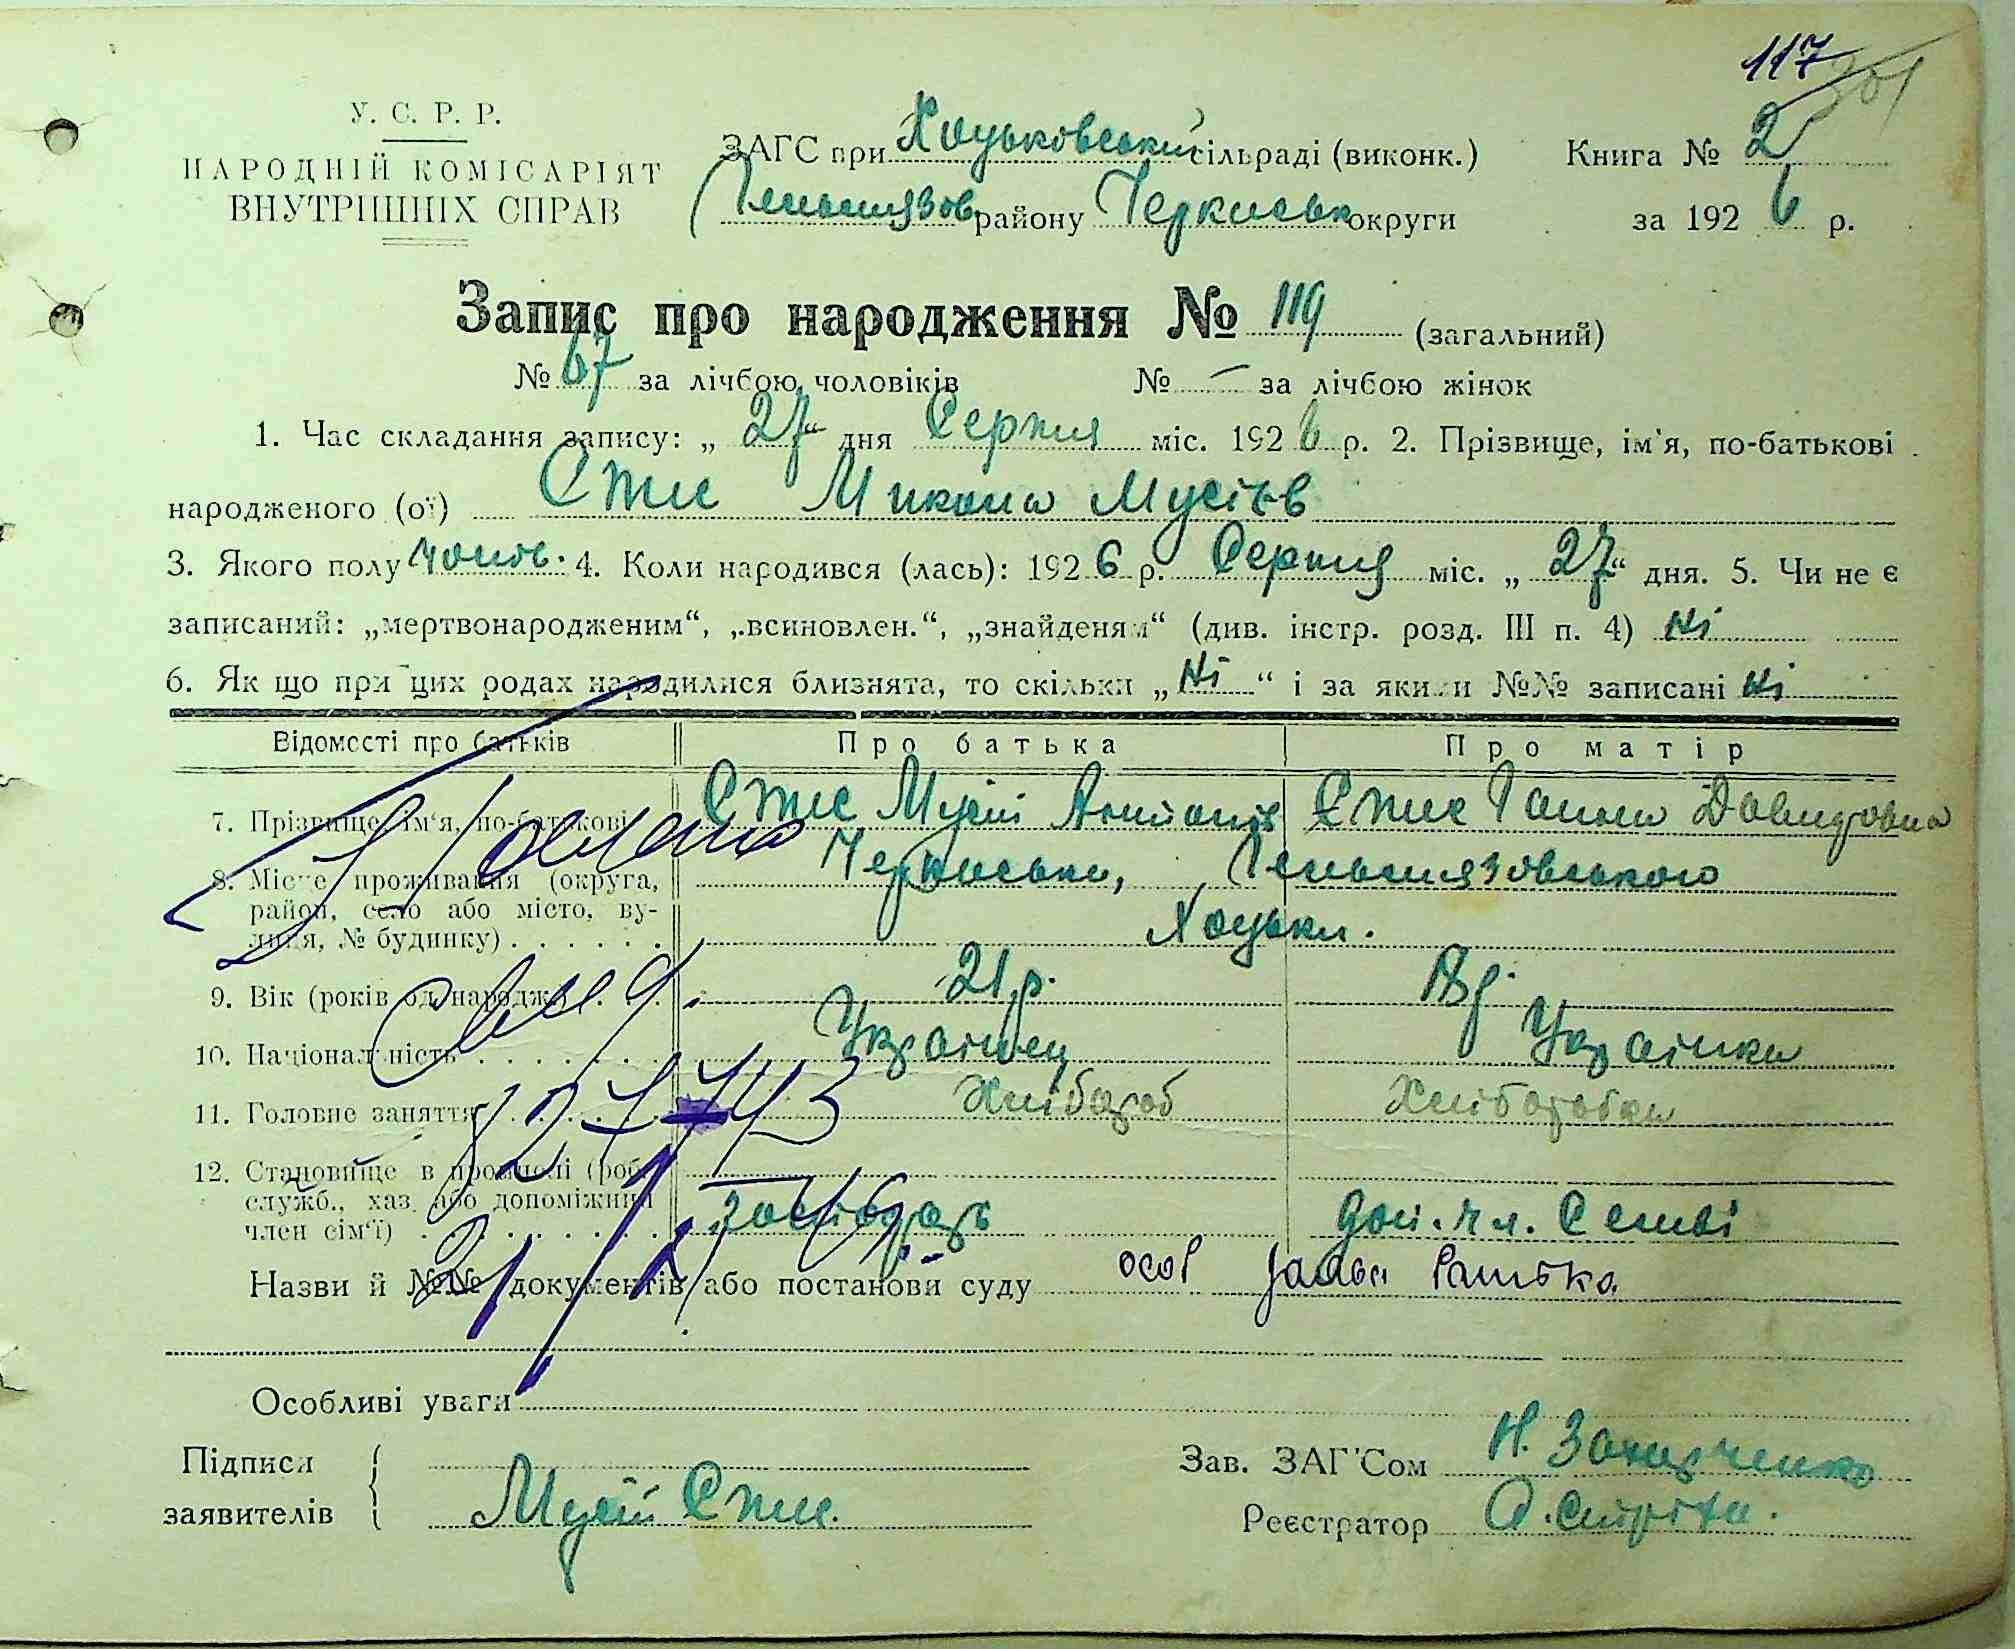 117
301
У. С. Р. Р.
НАРОДНІЙ КОМІСАРІЯТ
ВНУТРІШНІХ СПРАВ
ЗАГС при Хоцьковській сільраді (виконк.) Книга № 2
Гельмязов району Черкаськ округи за 1926 р.
Запис про народження № 119 (загальний)
№ 67 за лічбою чоловіків № — за лічбою жінок
1. Час складання запису: „27“ дня Серпня міс. 1926 р. 2. Прізвище, ім'я, по-батькові
народженого (ої) Микола Мусіїв
3. Якого полу чолов. 4. Коли народився (лась): 1926 р. Серпня міс. „27“ дня. 5. Чи не є
записаний: „мертвонародженим“, „всиновлен.“, „знайденям“ (див. інстр. розд. III п. 4) Ні
6. Як що при цих родах народилися близнята, то скільки „Ні“ і за якими №№ записані Ні
Відомості про батьків Про батька Про матір
7. Прізвище, ім'я, по-батькові Мусій Ганна Давидовна
8. Місце проживання (округа, Черкаська, Гельмязовського
район, село або місто, ву-
лиця, № будинку) Хоцьки.
9. Вік (років од народж.) 21 р. 18 р.
10. Національність Українец Українка
11. Головне заняття Хлібороб Хліборобка
12. Становище в промислі (роб.,
служб., хаз. або допоміжний
член сім'ї) господарь доп. чл. Семьї
Назви й №№ документів або постанови суду особ заява батька
Особливі уваги
Підписи
заявителів Мусій
Зав. ЗАГ'Сом Н.
Реєстратор